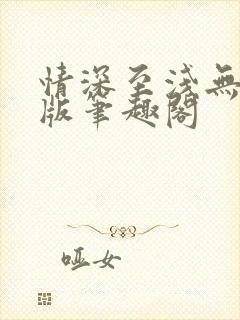 情深至浅無
版筆趣閣
哑女